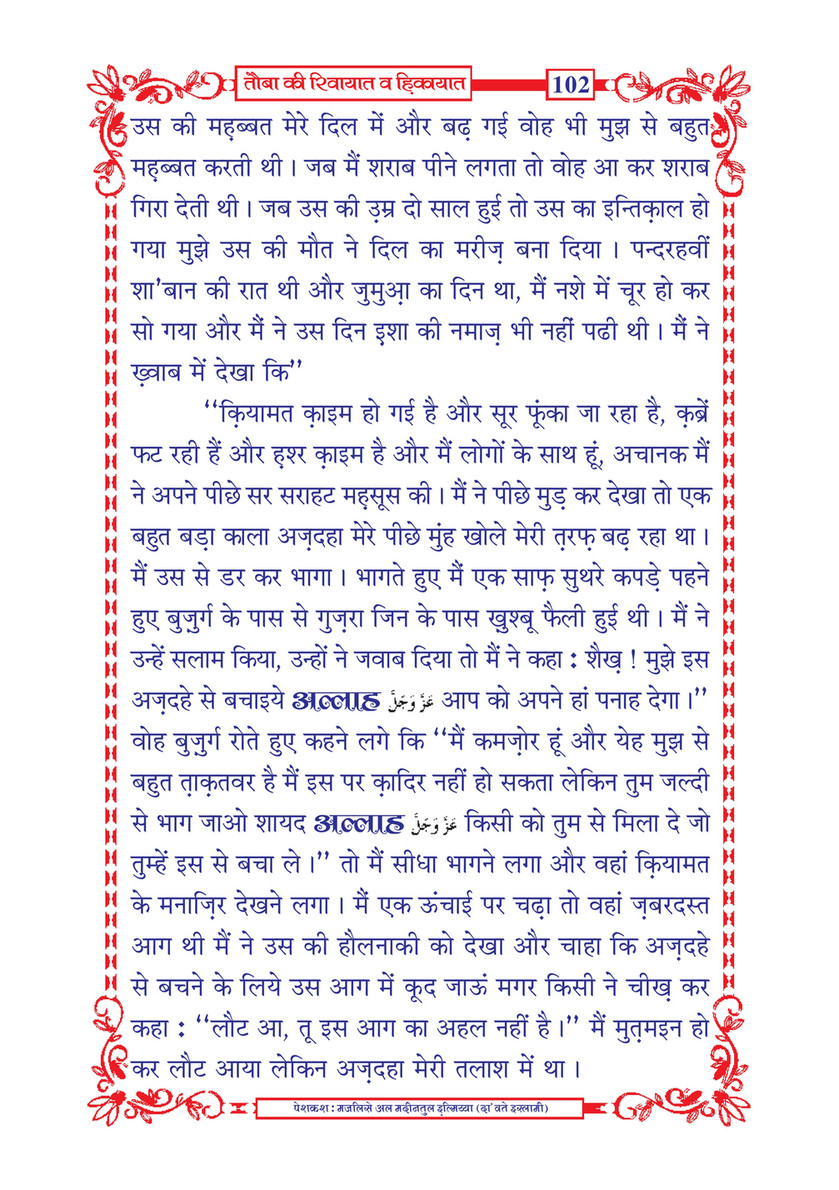 तौबा की रिवायात व हिकायात
102
उस की मह़ब्बत मेरे दिल में और बढ़ गई वोह भी मुझ से बहुत
मह़ब्बत करती थी । जब मैं शराब पीने लगता तो वोह आ कर शराब
गिरा देती थी । जब उस की उ़म्र दो साल हुई तो उस का इन्तिक़ाल हो
गया मुझे उस की मौत ने दिल का मरीज़ बना दिया । पन्दरहवीं
शा'बान की रात थी और जुमुआ़ का दिन था, मैं नशे में चूर हो कर
सो गया और मैं ने उस दिन इ़शा की नमाज़ भी नहीं पढी थी । मैं ने
ख़्वाब में देखा कि”
“क़ियामत क़ाइम हो गई है और सूर फूंका जा रहा है, क़ब्रें
फट रही हैं और ह़श्र क़ाइम है और मैं लोगों के साथ हूं, अचानक मैं
ने अपने पीछे सर सराहट मह़सूस की । मैं ने पीछे मुड़ कर देखा तो एक
बहुत बड़ा काला अज़दहा मेरे पीछे मुंह खोले मेरी त़रफ़ बढ़ रहा था ।
मैं उस से डर कर भागा । भागते हुए मैं एक साफ़ सुथरे कपड़े पहने
हुए बुजुर्ग के पास से गुज़रा जिन के पास ख़ुश्बू फैली हुई थी । मैं ने
उन्हें सलाम किया, उन्हों ने जवाब दिया तो मैं ने कहा : शैख़ ! मुझे इस
अज़दहे से बचाइये अल्लाह عَزَّ وَجَلَّ आप को अपने हां पनाह देगा ।”
वोह बुजुर्ग रोते हुए कहने लगे कि “मैं कमज़ोर हूं और येह मुझ से
बहुत त़ाक़तवर है मैं इस पर क़ादिर नहीं हो सकता लेकिन तुम जल्दी
से भाग जाओ शायद अल्लाह عَزَّ وَجَلَّ किसी को तुम से मिला दे जो
तुम्हें इस से बचा ले ।” तो मैं सीधा भागने लगा और वहां क़ियामत
के मनाज़िर देखने लगा । मैं एक ऊंचाई पर चढ़ा तो वहां ज़बरदस्त
आग थी मैं ने उस की हौलनाकी को देखा और चाहा कि अज़दहे
से बचने के लिये उस आग में कूद जाऊं मगर किसी ने चीख़ कर
कहा : “लौट आ, तू इस आग का अहल नहीं है ।” मैं मुत़मइन हो
कर लौट आया लेकिन अज़दहा मेरी तलाश में था ।
पेशकश : मजलिसे अल मदीनतुल इ़ल्मिय्या (दा'वते इस्लामी)